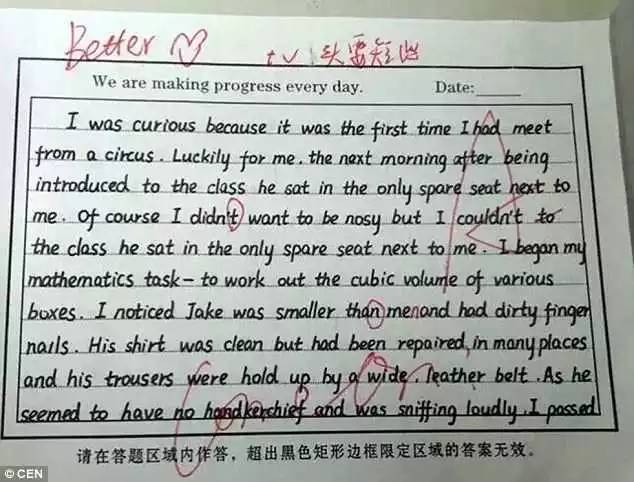 Better ♡ tv 头要短些
We are making progress every day. Date:
I was curious because it was the first time I had meet
from a circus. Luckily for me. the next morning after being
introduced to the class he sat in the only spare seat next to
me. Of course I didn't want to be nosy but I couldn't to
the class he sat in the only spare seat next to me. I began my
mathematics task- to work out the cubic volume of various
boxes. I noticed Jake was smaller than menand had dirty finger
nails. His shirt was clean but had been repaired, in many places
and his trousers were hold up by a wide. leather belt. As he
seemed to have no handkerchief and was sniffing loudly. I passed
请在答题区域内作答，超出黑色矩形边框限定区域的答案无效。
© CEN